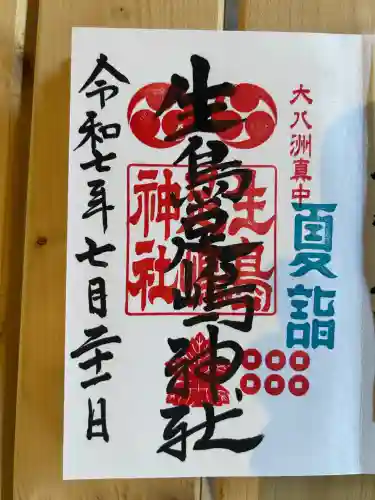 大八洲真中
夏詣
生島足島神社
生島足島神社
令和七年七月二十一日